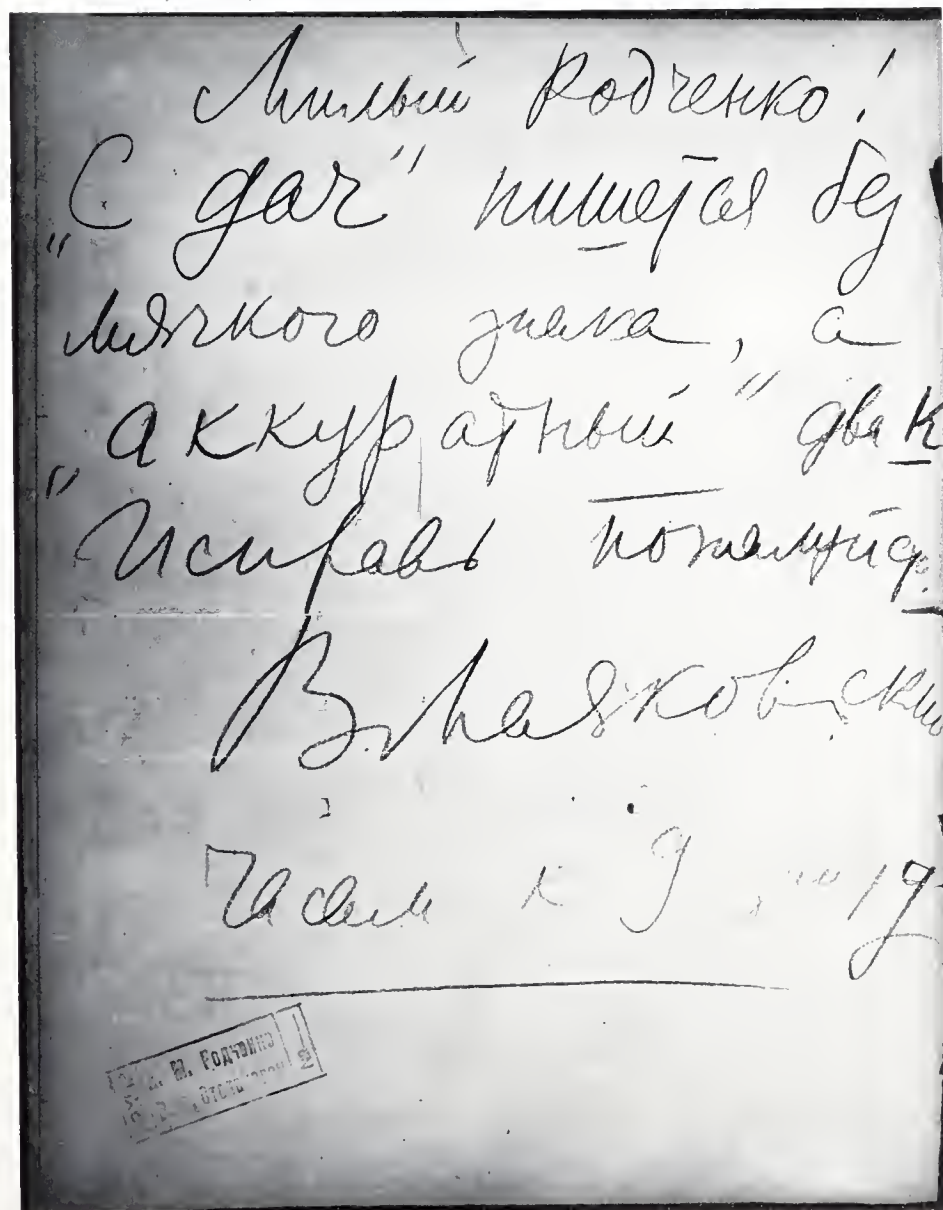 Милый Родченко!
„С дач" пишется без
мягкого знака, а
„аккуратный" два к
Исправь пожалуйста.
В. Маяковский
Часам к 9
М. Родченко